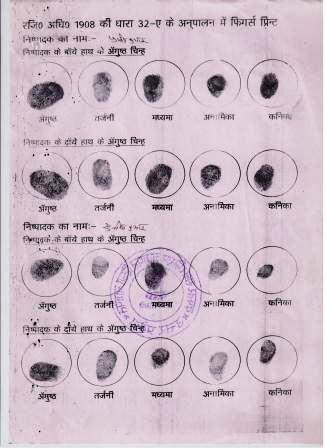 रजि० अधि० 1908 की धारा 32-ए के अनुपालन में फिंगर्स प्रिन्ट
निष्पादक का नामः-
निष्पादक के बाँये हाथ के अँगुष्ठ चिन्ह
अँगुष्ठ तर्जनी मध्यमा अनामिका कनिका
निष्पादक के दाँये हाथ के अँगुष्ठ चिन्ह
अँगुष्ठ तर्जनी मध्यमा अनामिका कनिका
निष्पादक का नामः-
निष्पादक के बाँये हाथ के अँगुष्ठ चिन्ह
अँगुष्ठ तर्जनी मध्यमा अनामिका कनिका
निष्पादक के दाँये हाथ के अँगुष्ठ चिन्ह
अँगुष्ठ तर्जनी मध्यमा अनामिका कनिका